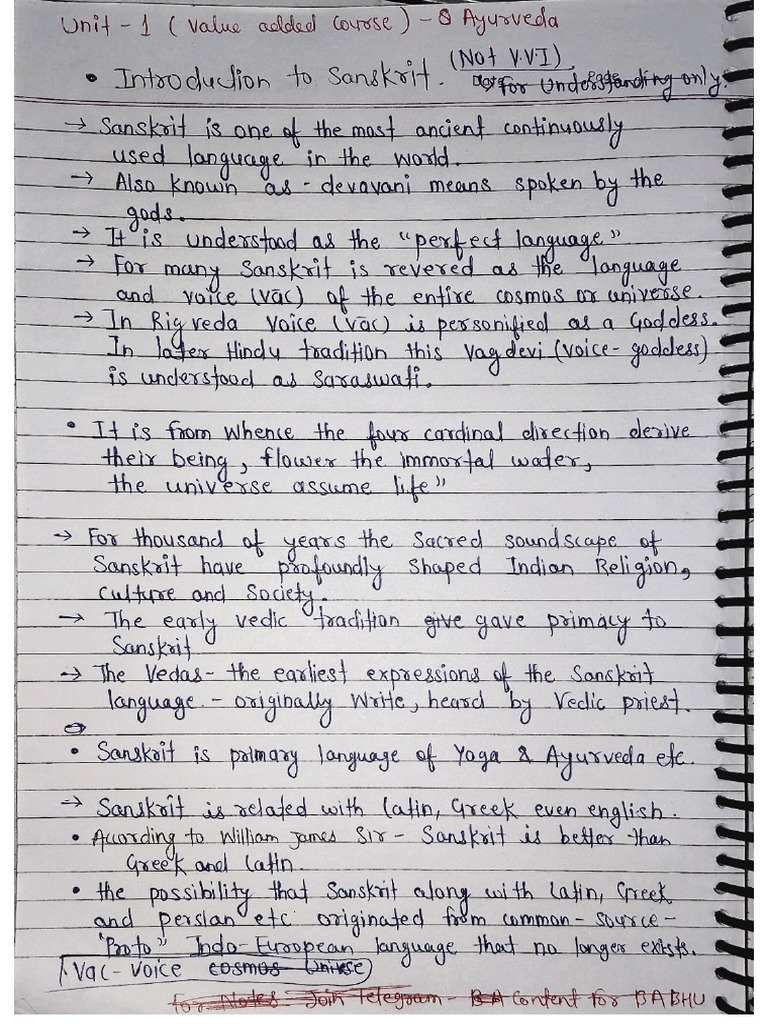 Unit - 1 ( Value added Course ) - Ayurveda
• Introduction to Sanskrit. (Not V.V.I)
for Understanding only.
→ Sanskrit is one of the most ancient continuously
used language in the world.
→ Also known as - devavani means spoken by the
gods.
→ It is understood as the "perfect language"
→ For many Sanskrit is revered as the language
and voice (vāc) of the entire cosmos or universe.
→ In Rigveda Voice (vāc) is personified as a Goddess.
In later Hindu tradition this Vagdevi (voice-goddess)
is understood as Saraswati.
• It is from whence the four cardinal direction derive
their being, flower the immortal water,
the universe assume life"
→ For thousand of years the Sacred soundscape of
Sanskrit have profoundly shaped Indian Religion,
Culture and Society.
→ The early vedic tradition give gave primacy to
Sanskrit
→ The Vedas - the earliest expressions of the Sanskrit
language - originally Write, heard by Vedic priest.
• Sanskrit is primary language of Yoga & Ayurveda etc.
→ Sanskrit is related with Latin, Greek even english.
• According to William James Sir - Sanskrit is better than
Greek and Latin.
• the possibility that Sanskrit along with Latin, Greek
and Persian etc originated from common - source -
"Proto" Indo-European language that no longer exists.
Vac - Voice cosmos Universe
for Notes Join Telegram - BA Content for BABHU